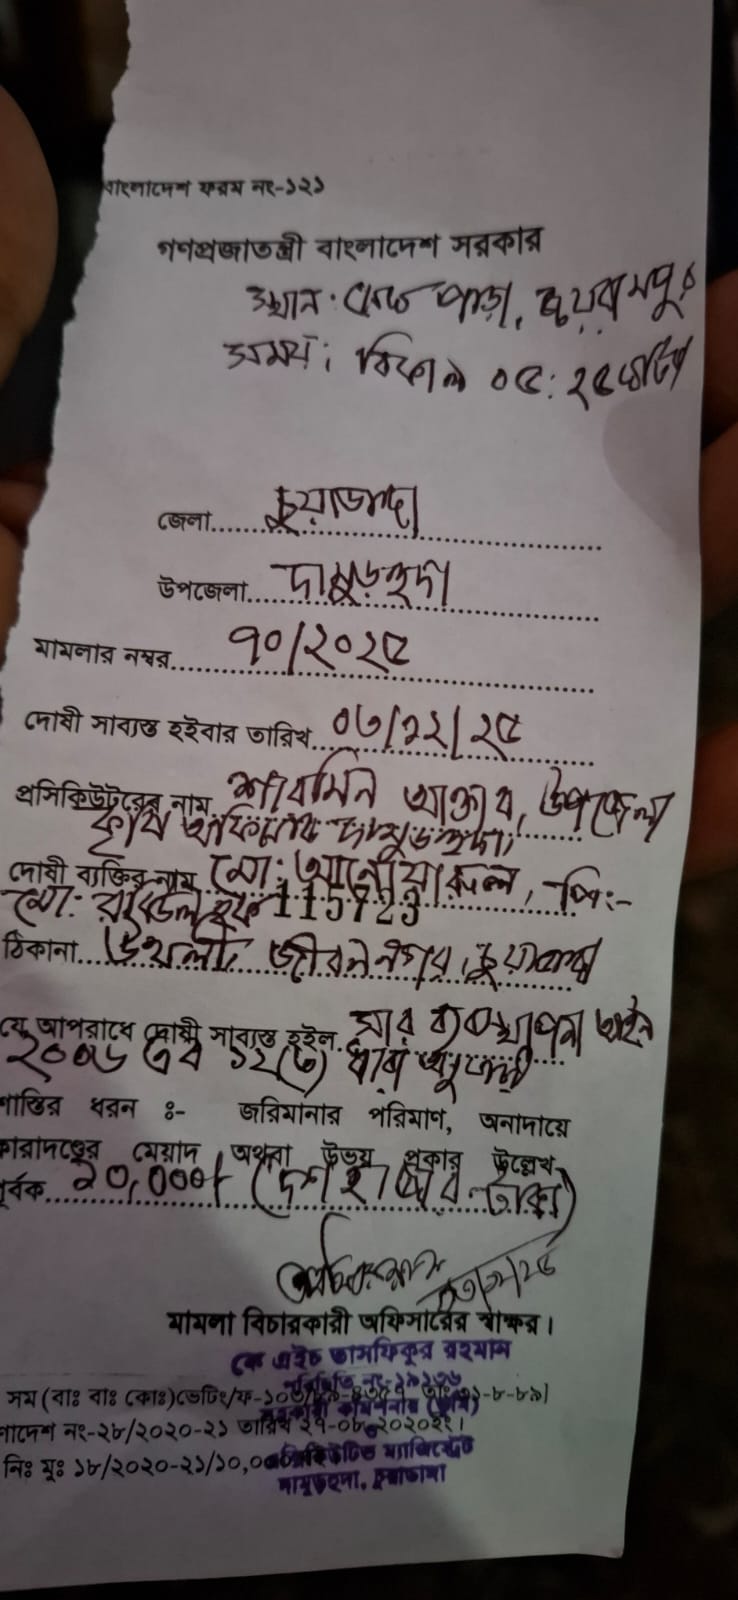 বাংলাদেশ ফরম নং-১২১
গণপ্রজাতন্ত্রী বাংলাদেশ সরকার
স্থান: পাড়া, জয়রামপুর
সময়: বিকাল ০৫:২৫
জেলা..... চুয়াডাঙ্গা
উপজেলা..... দামুড়হুদা
মামলার নম্বর..... ৭০/২০২৫
দোষী সাব্যস্ত হইবার তারিখ..... ০৩/১২/২৫
প্রসিকিউটরের নাম শারমিন আক্তার, উপজেলা
কৃষি অফিসার দামুড়হুদা,
দোষী ব্যক্তির নাম মো: আনোয়ারুল, পি:-
মো: 115723
ঠিকানা..... উথলী জীবননগর, চুয়াডাঙ্গা
যে আপরাধে দোষী সাব্যস্ত হইল সার ব্যবস্থাপনা আইন
২০০৬ এর ১২(৩) ধারা অনুযায়ী
শাস্তির ধরন ঃ- জরিমানার পরিমাণ, অনাদায়ে
কারাদণ্ডের মেয়াদ অথবা উভয় প্রকার উল্লেখ-
পূর্বক..... ১০,০০০/ (দশ হাজার টাকা)
০৩/১২/২৫
মামলা বিচারকারী অফিসারের স্বাক্ষর।
কে এইচ তাসফিকুর রহমান
পরিচিতি নং-১৯১৩৬
সম (বাঃ বাঃ কোঃ) ভেটিং/ফ-১০৩/৮৯
সহকারী কমিশনার (ভূমি)
আদেশ নং-২৮/২০২০-২১ তারিখ ২৭-০৮-২০২০ইং।
এক্সিকিউটিভ ম্যাজিস্ট্রেট
নিঃ মুঃ ১৮/২০২০-২১/১০,০০০
দামুড়হুদা, চুয়াডাঙ্গা